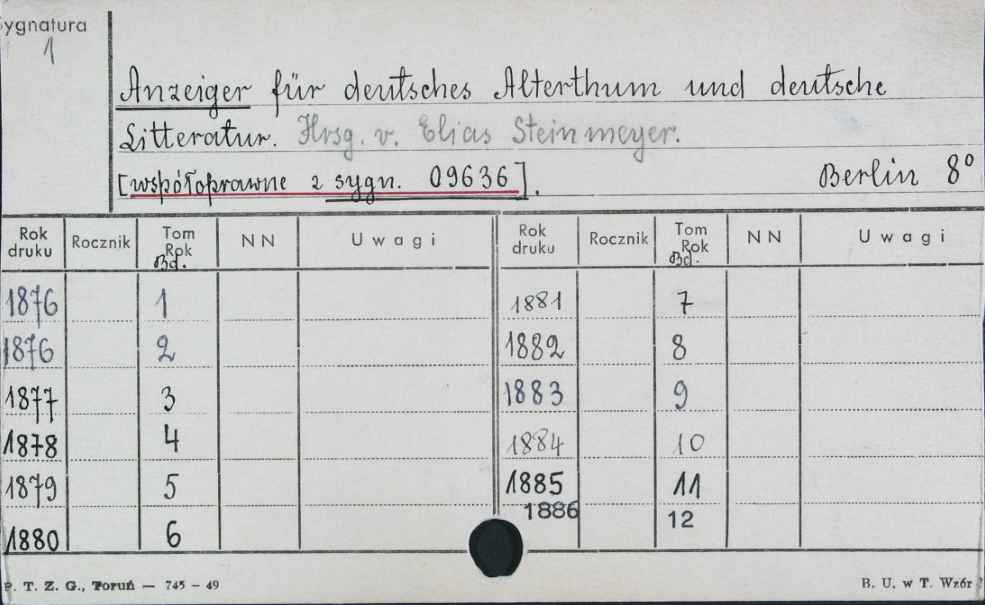 ygnatura
1
Anzeiger für deutsches Alterthum und deutsche
Litteratur. Hrsg. v. Elias Steinmeyer.
[współoprawne z sygn. 09636]. Berlin 8°
Rok druku Rocznik Tom Rok Bd. NN Uwagi Rok druku Rocznik Tom Rok Bd. NN Uwagi
1876 1 1881 7
1876 2 1882 8
1877 3 1883 9
1878 4 1884 10
1879 5 1885 11
1886 12
1880 6
P. T. Z. G., Toruń — 745 - 49 B. U. w T. Wzór